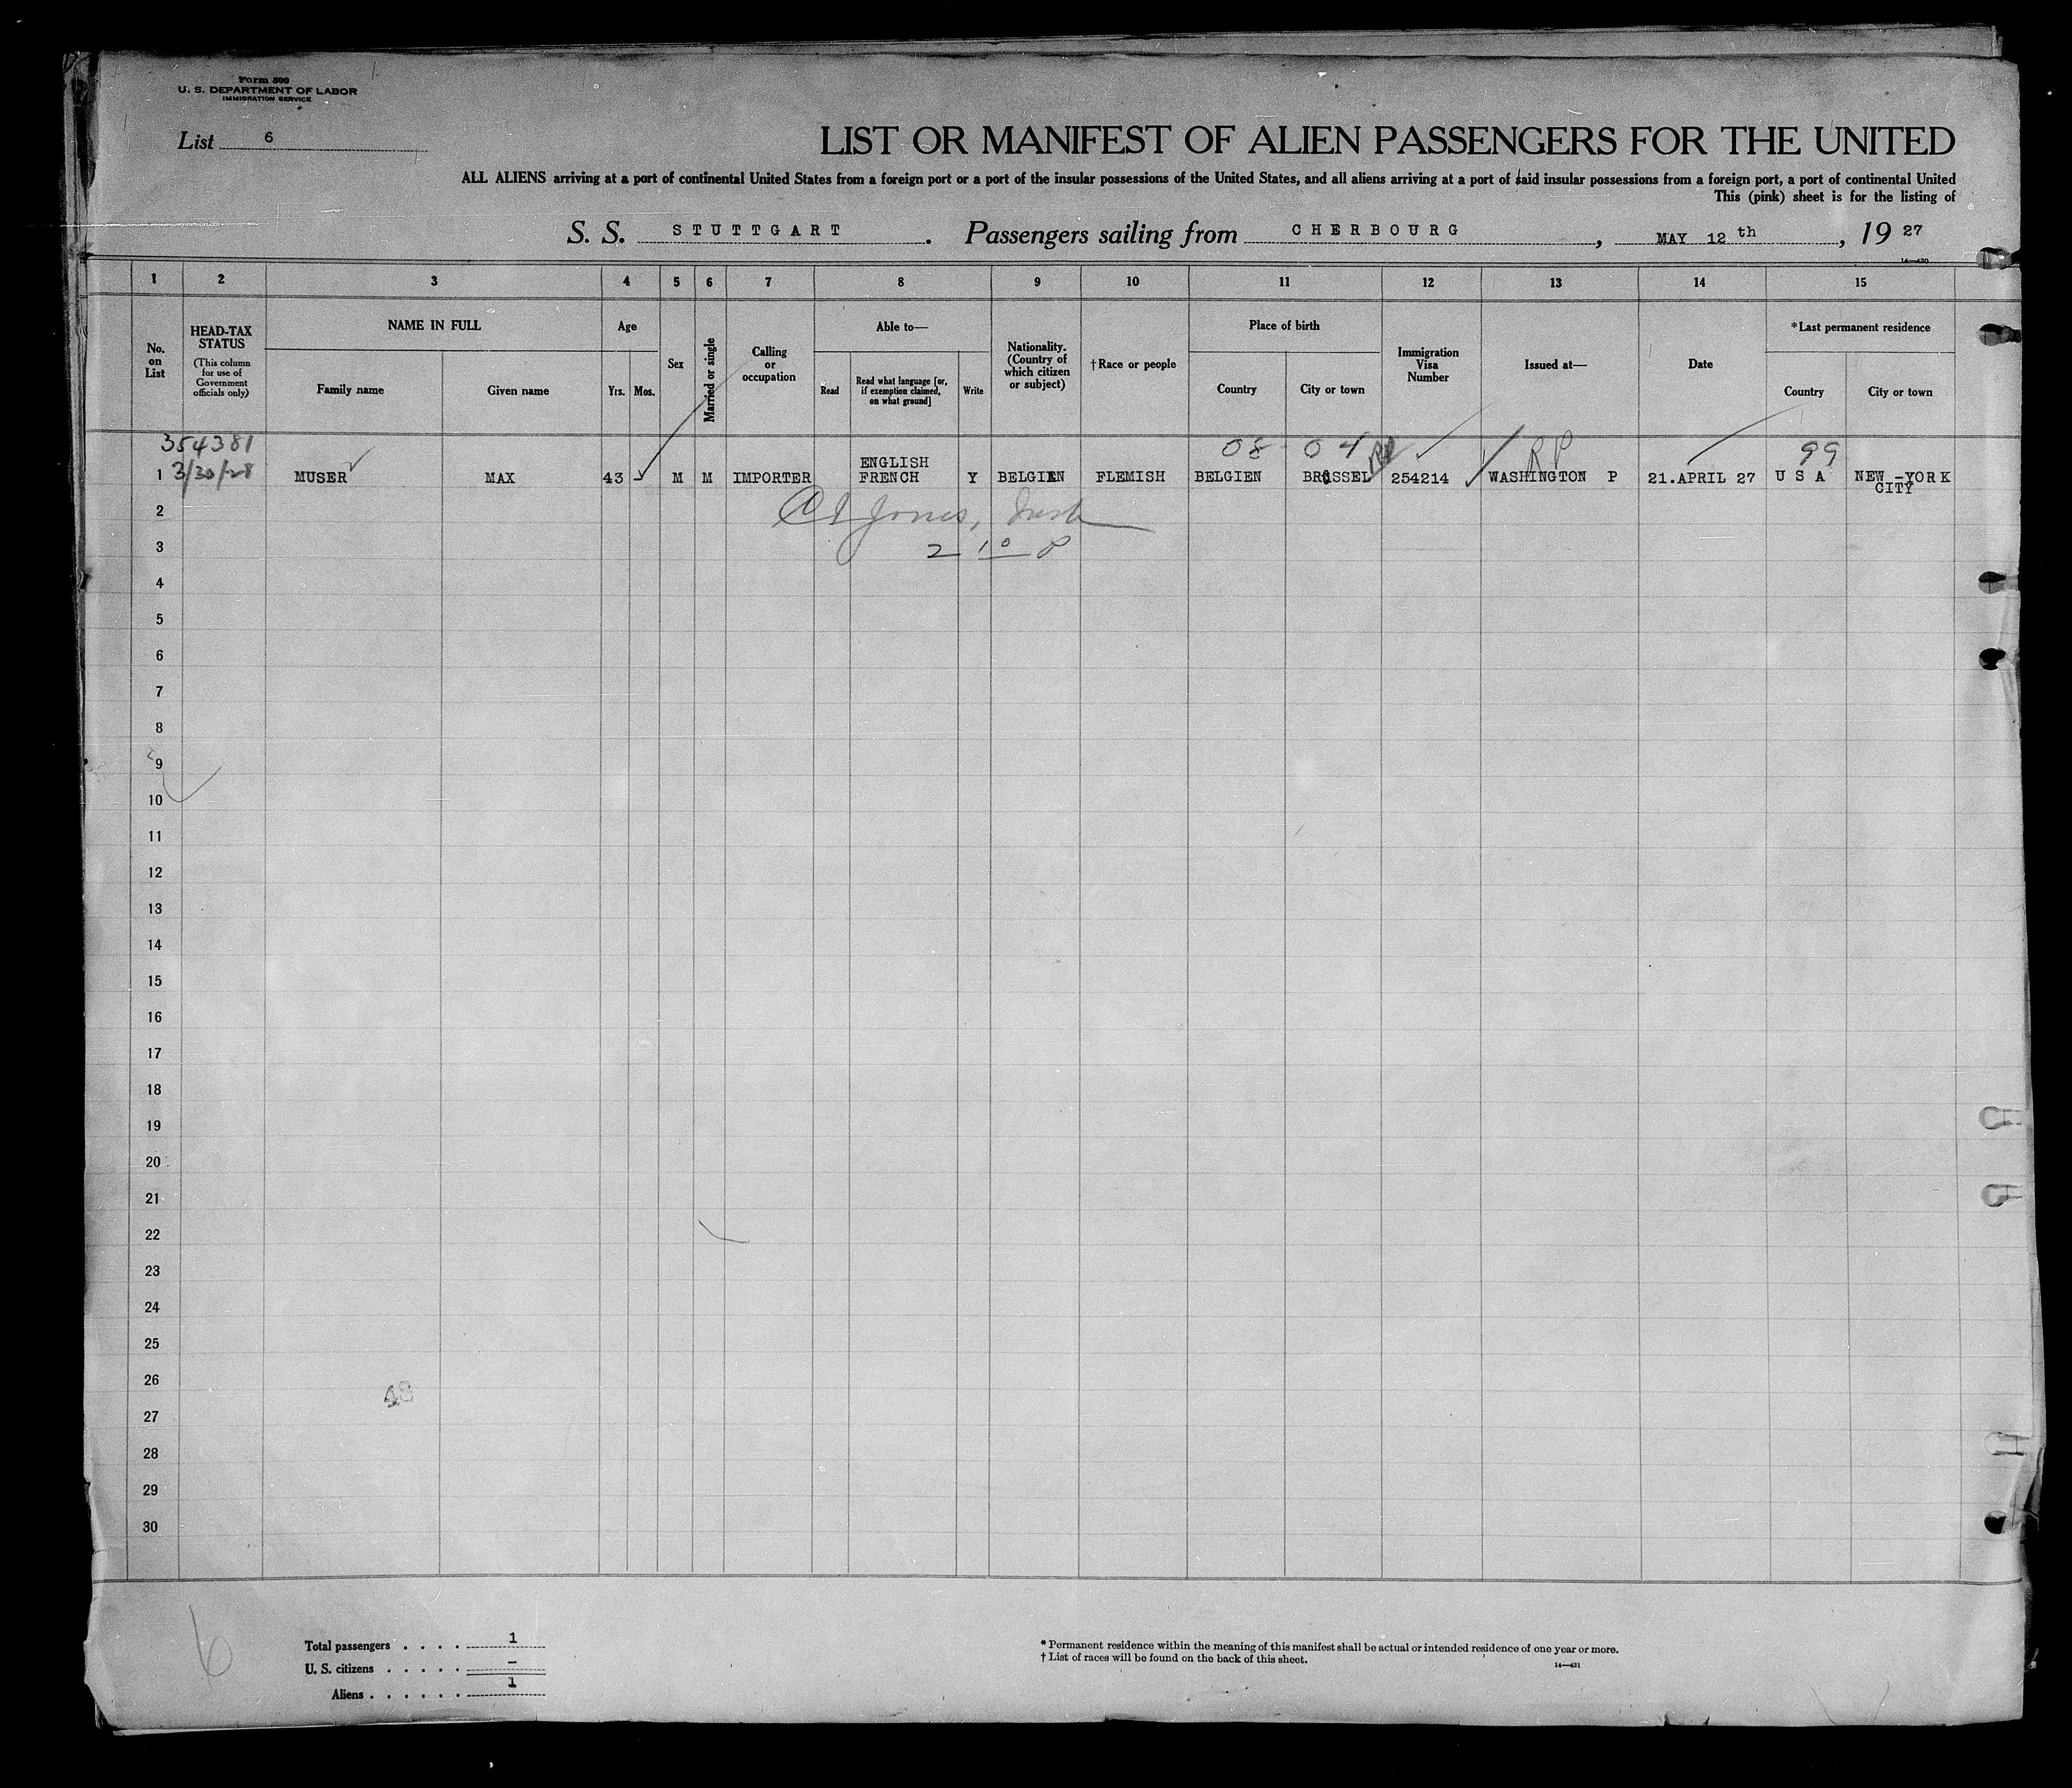 Form 500
U. S. DEPARTMENT OF LABOR
IMMIGRATION SERVICE
List 6
LIST OR MANIFEST OF ALIEN PASSENGERS FOR THE UNITED
ALL ALIENS arriving at a port of continental United States from a foreign port or a port of the insular possessions of the United States, and all aliens arriving at a port of said insular possessions from a foreign port, a port of continental United
This (pink) sheet is for the listing of
S. S. STUTTGART. Passengers sailing from CHERBOURG, MAY 12 th, 19 27
14—430
1 2 3 4 5 6 7 8 9 10 11 12 13 14 15
No. on List
HEAD-TAX STATUS
(This column for use of Government officials only)
NAME IN FULL
Family name
Given name
Age
Yrs. Mos.
Sex
Married or single
Calling or occupation
Able to—
Read
Read what language [or, if exemption claimed, on what ground]
Write
Nationality. (Country of which citizen or subject)
†Race or people
Place of birth
Country
City or town
Immigration Visa Number
Issued at—
Date
*Last permanent residence
Country
City or town
354381 08 04 RP 99
1 3/30/28 MUSER MAX 43 M M IMPORTER ENGLISH FRENCH Y BELGIEN FLEMISH BELGIEN BRÜSSEL 254214 WASHINGTON P 21.APRIL 27 U S A NEW-YORK CITY
2 Jones,
3 2 10 P
4
5
6
7
8
9
10
11
12
13
14
15
16
17
18
19
20
21
22
23
24
25
26
27
28
29
30
48
6
Total passengers . . . . 1
U. S. citizens . . . . . –
Aliens . . . . . . 1
* Permanent residence within the meaning of this manifest shall be actual or intended residence of one year or more.
† List of races will be found on the back of this sheet.
14—431